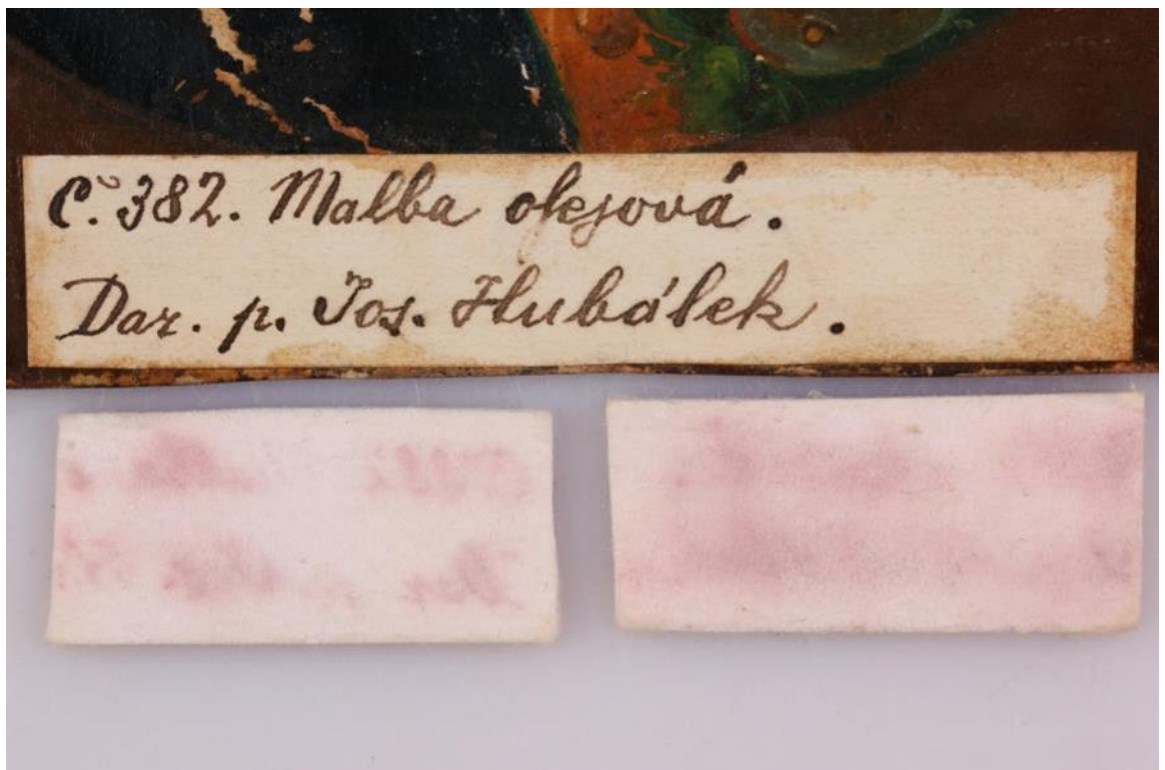 Č. 382. Malba olejová.
Dar. p. Jos. Hubálek.